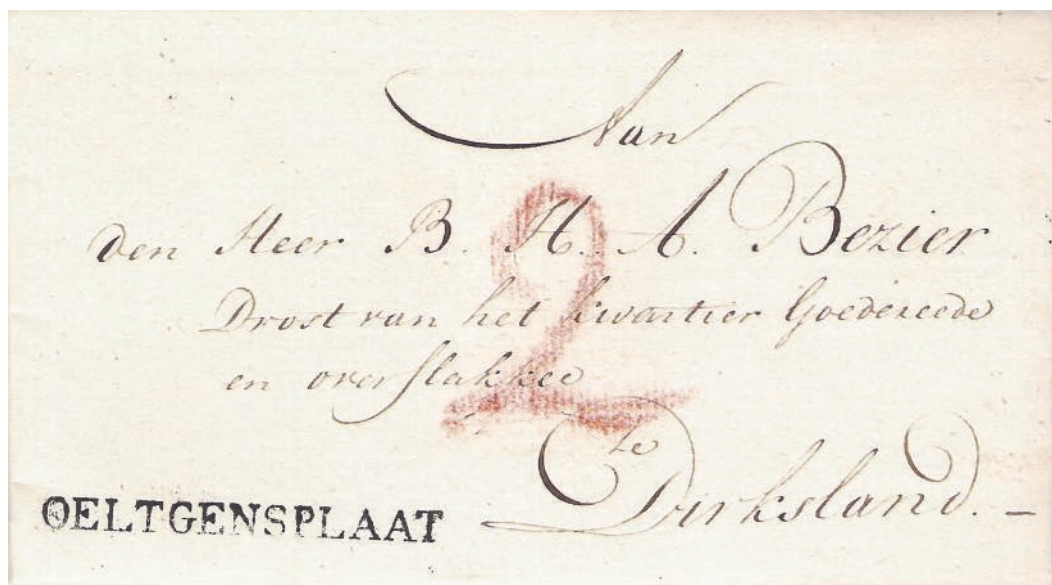 Aan
den Heer B. H. A. Bezier
Drost van het kwartier Goedereede
en overflakkee
2
te
Dirksland. -
OELTGENSPLAAT